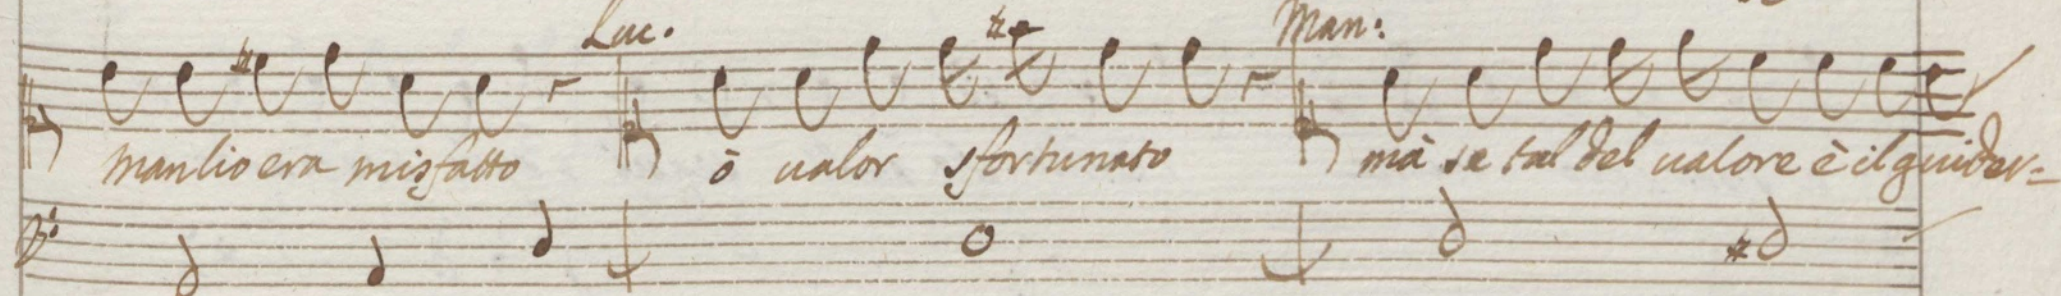 Luc. Man:
manlio era misfatto ò valor sfortunato mà se tal del valore è il guider=